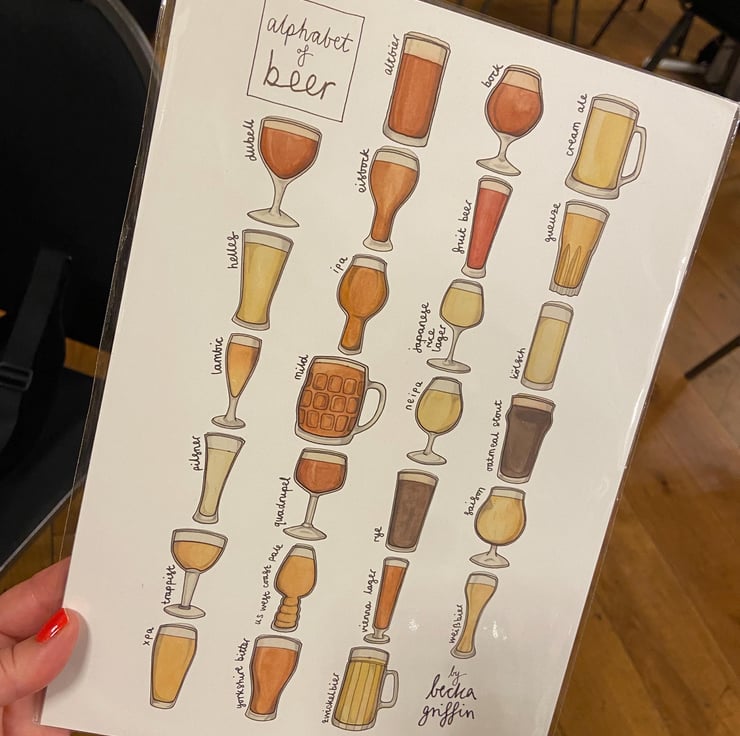 alphabet
of
beer
altbier
bock
cream ale
dubell
eisbock
fruit beer
gueuze
helles
ipa
japanese
rice
lager
kölsch
lambic
mild
neipa
oatmeal stout
pilsner
quadrupel
rye
saison
trappist
us west coast pale
vienna lager
weißbier
xpa
yorkshire bitter
zwickelbier
by
becka
griffin